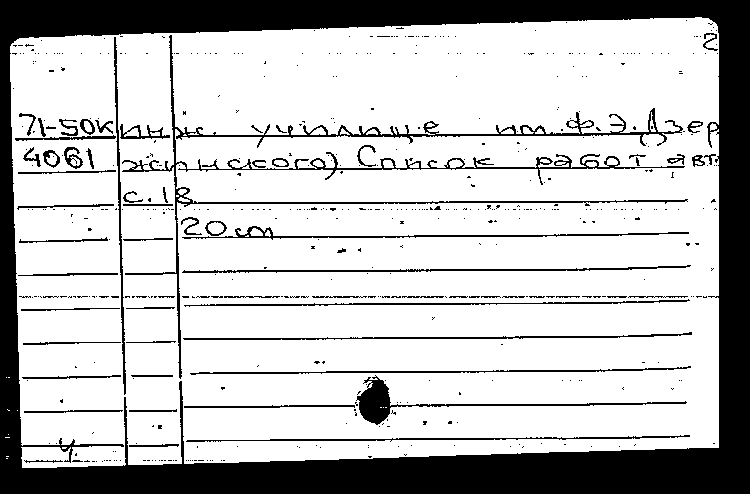 2
71-50К инж. училище им. Ф.Э. Дзер
4061 жинского). Список работ авт.
с.18
20 cm
Ч.